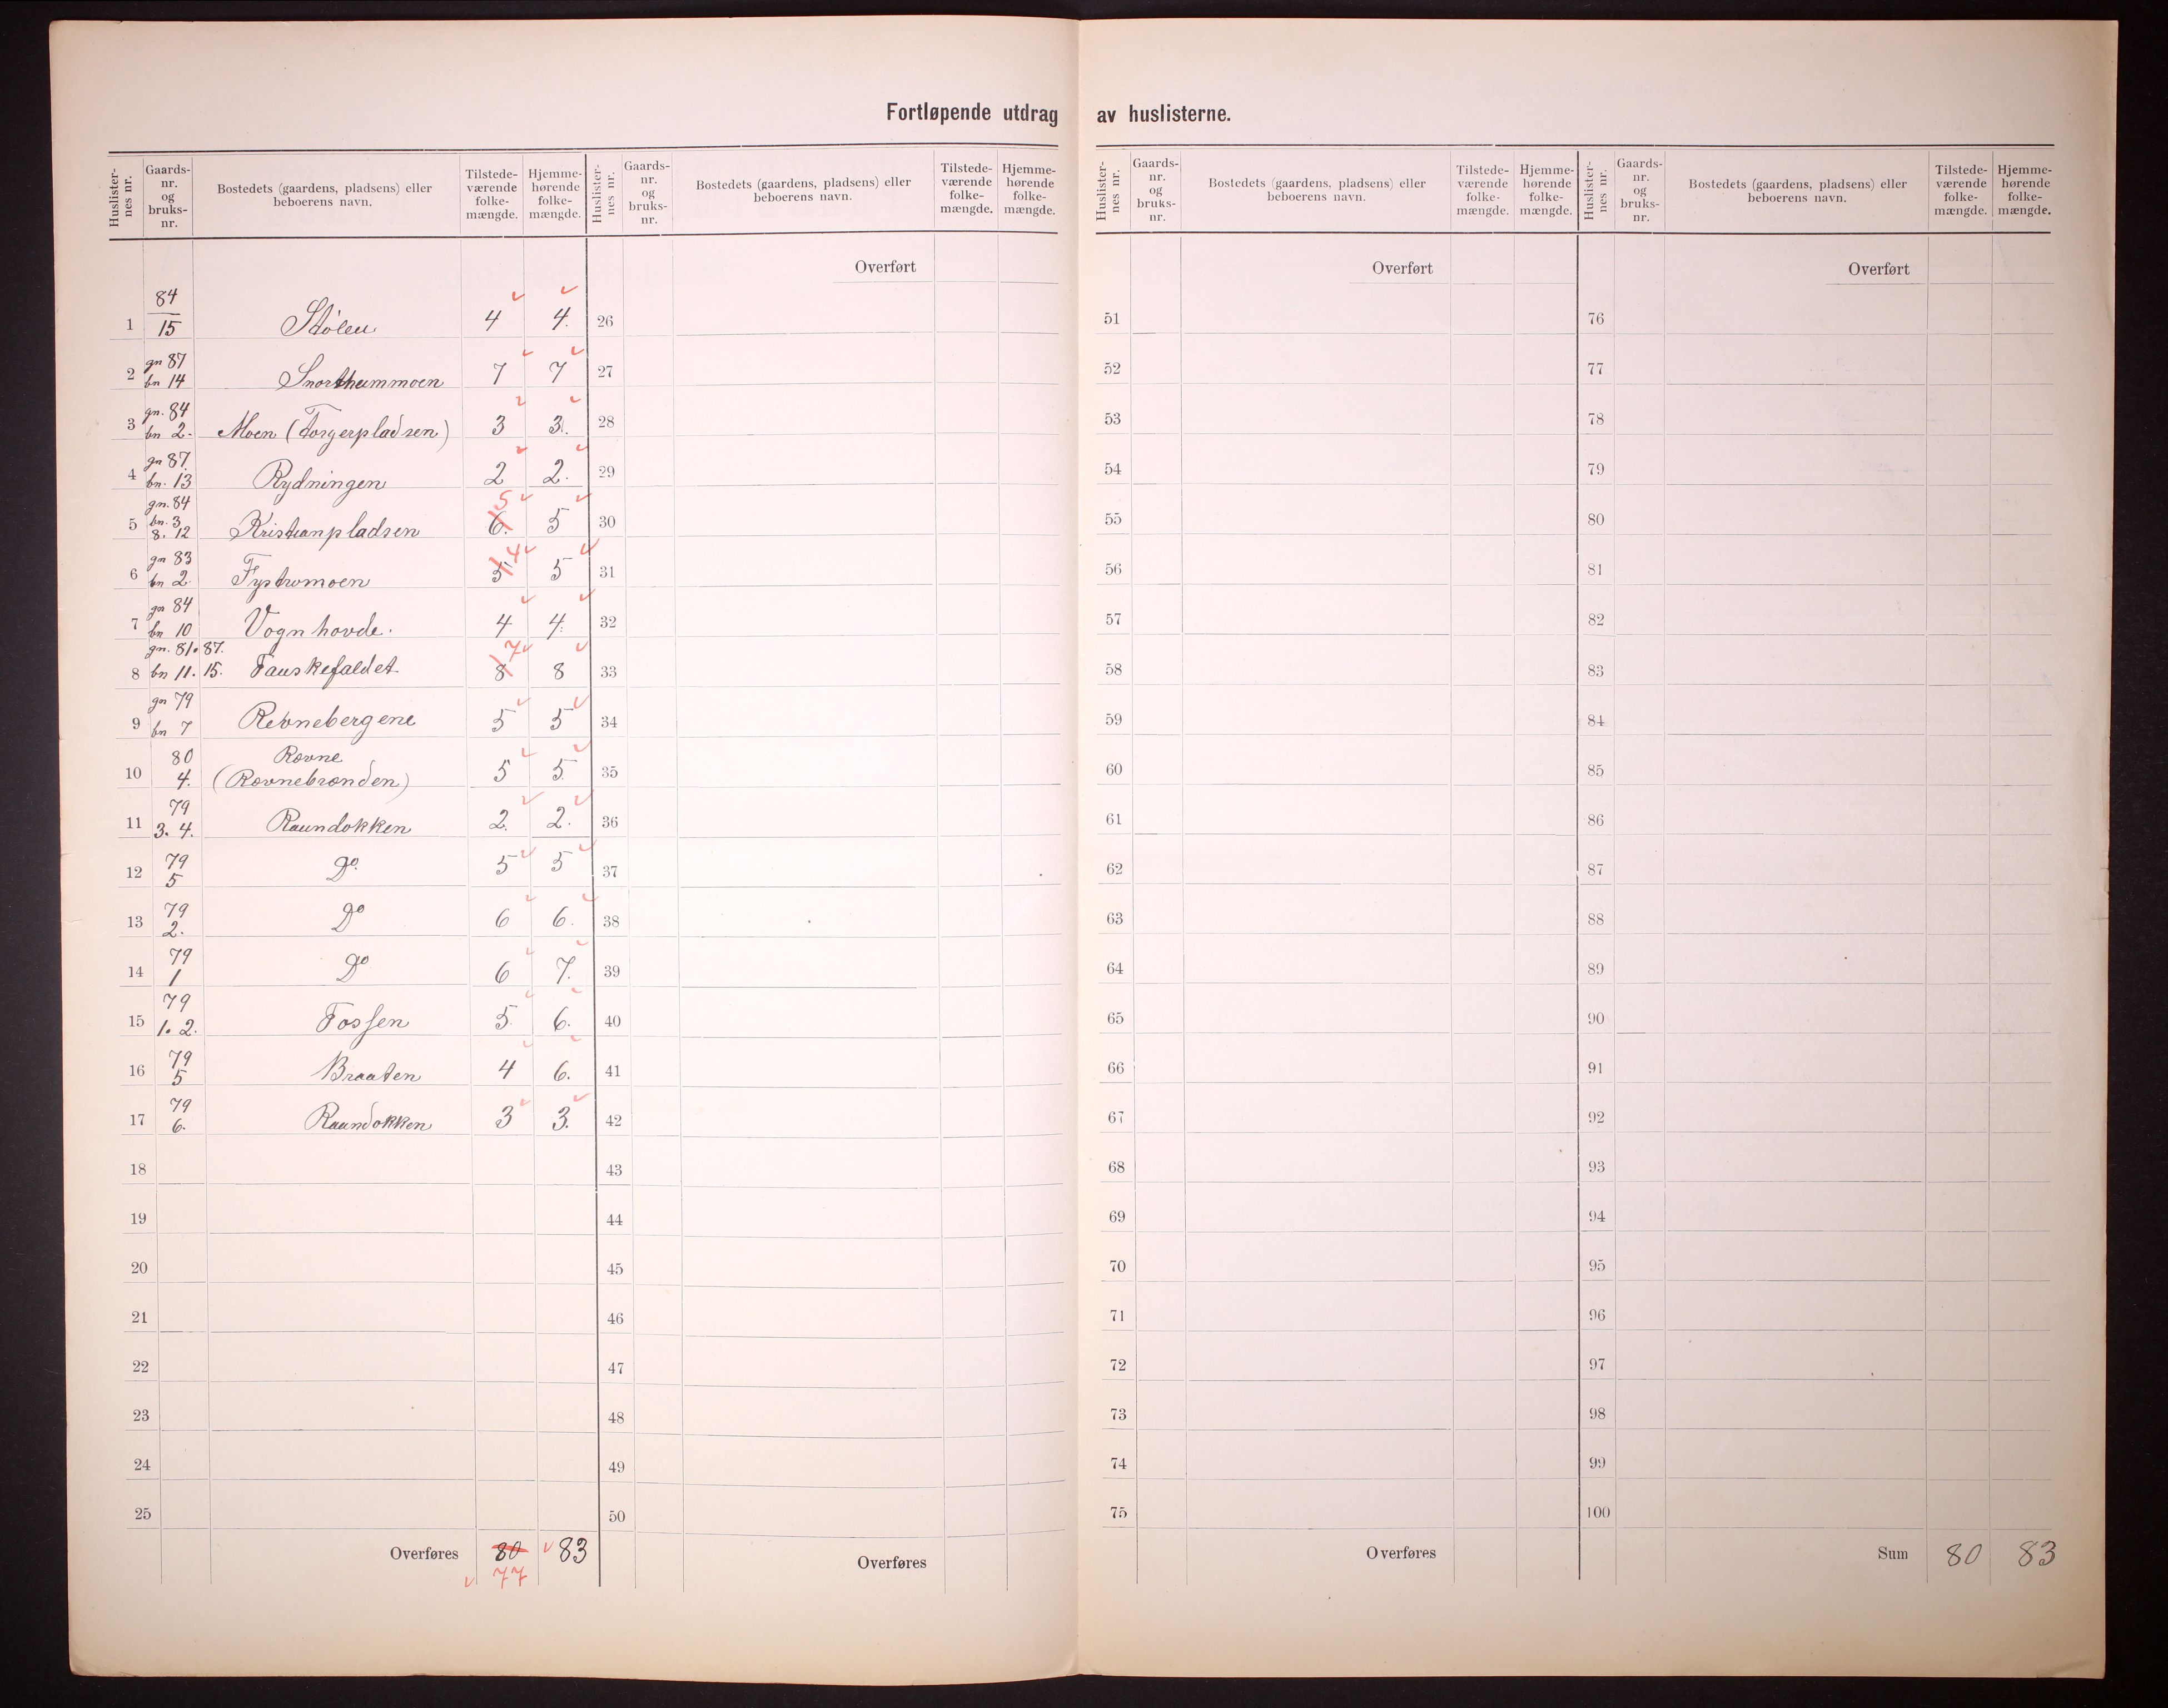 Fortløpende utdrag av huslisterne.
Huslister-nes nr. Gaards-nr. og bruks-nr. Bostedets (gaardens, pladsens) eller beboerens navn. Tilstede-værende folke-mængde. Hjemme-hørende folke-mængde.
Huslister-nes nr. Gaards-nr. og bruks-nr. Bostedets (gaardens, pladsens) eller beboerens navn. Tilstede-værende folke-mængde. Hjemme-hørende folke-mængde.
Huslister-nes nr. Gaards-nr. og bruks-nr. Bostedets (gaardens, pladsens) eller beboerens navn. Tilstede-værende folke-mængde. Hjemme-hørende folke-mængde.
Huslister-nes nr. Gaards-nr. og bruks-nr. Bostedets (gaardens, pladsens) eller beboerens navn. Tilstede-værende folke-mængde. Hjemme-hørende folke-mængde.
1 84/15 Stølen 4 4.
2 gn 87 bn 14 Snorthummoen 7 7
3 gn. 84 bn 2. Moen (Torgerpladsen) 3 3.
4 gn 87. bn. 13 Rydningen 2 2.
5 gn. 84 bn. 3 8. 12 Kristianpladsen 6. 5 5
6 gn 83 bn 2. Fystromoen 5 4 5
7 gn 84 bn 10 Vognhovde. 4 4.
8 gn. 81. 87. bn 11. 15. Fauskefaldet 8 7 8
9 gn 79 bn 7 Revnebergene 5 5
10 80 4. Rovne (Rovnebronden) 5 5.
11 79 3. 4. Raundokken 2. 2.
12 79 5 Do. 5 5
13 79 2. Do 6 6.
14 79 1 Do 6 7.
15 79 1. 2. Fossen 5. 6.
16 79 5 Braaten 4 6.
17 79 6. Raundokken 3 3.
18
19
20
21
22
23
24
25
Overføres 80 83
77
Overført
26
27
28
29
30
31
32
33
34
35
36
37
38
39
40
41
42
43
44
45
46
47
48
49
50
Overføres
Overført
51
52
53
54
55
56
57
58
59
60
61
62
63
64
65
66
67
68
69
70
71
72
73
74
75
Overføres
Overført
76
77
78
79
80
81
82
83
84
85
86
87
88
89
90
91
92
93
94
95
96
97
98
99
100
Sum 80 83